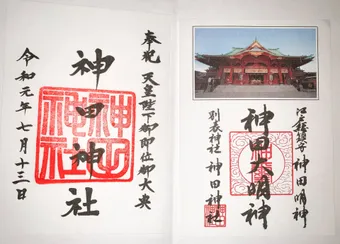 奉祝 天皇陛下御即位御大典
神田神社
令和元年七月十三日
神田神社
江戸総鎮守 神田明神
神田大明神
別表神社 神田神社